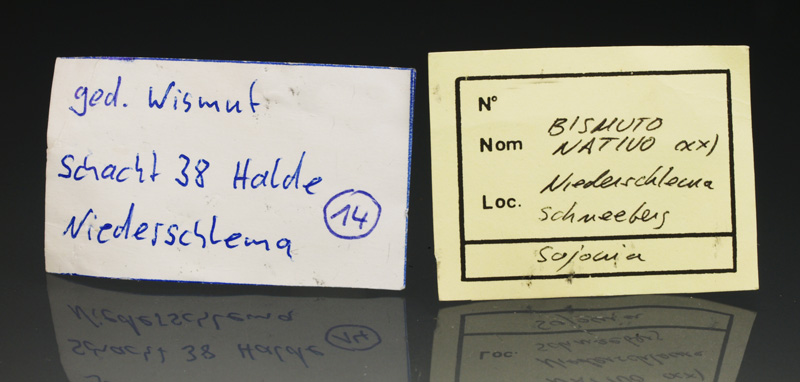 ged. Wismut
Schacht 38 Halde
Niederschlema
14
N°
Nom BISMUTO
NATIVO xx)
Loc. Niederschlema
Schneeberg
Sajonia